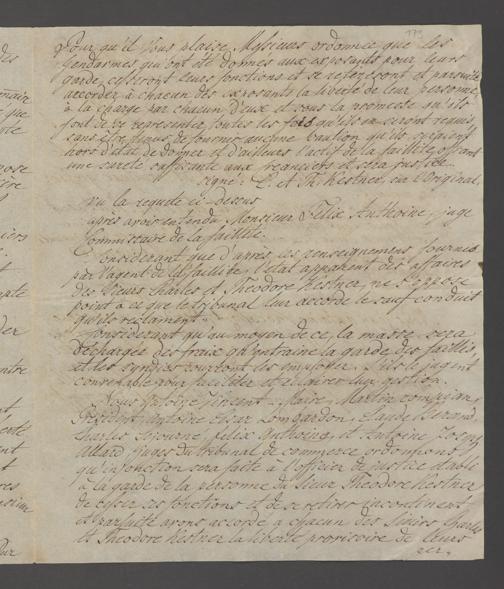 179
Pour qu'il vous plaise, Messieurs ordonner que les
gendarmes qui ont été donnés aux exposants pour leurs
garde, cesseront leurs fonctions et se retireront et
accorder à chacun des exposants la liberté de leur personne
à la charge par chacun d'eux et sous la promesse qu'ils
font de se representer toutes les fois qu'ils en seront requis,
sans être tenus de fournir aucune caution qu'ils seroient
hors d'état de donner et d'ailleurs l'actif de la faillite offrant
une sureté suffisante aux créanciers et sera justice
signé: C. et Th. Kestner, en l'Original.
Vu la requête ci-dessus
après avoir entendu Monsieur Félix Anthoine, juge
Commissaire de la faillite.
Considérant que d'après les renseignemens fournis
par l'agent de la faillite, l'état apparent des affaires
des Sieurs Charles et Theodore Kestner, ne s'oppose
point à ce que le tribunal leur accorde le sauf conduit
qu'ils réclament.
Considérant qu'au moyen de ce, la masse sera
déchargée des fraix qu'entraine la garde des faillis,
et les syndics pourront les employer s'ils le jugent
convenable pour faciliter et éclairer leur gestion.
Nous Vincent faire, Martin
Président, Antoine Cesar Lombardon, Claude
Charles Sejourné, félix Anthoine, et Antoine Joseph
Allard, juges du tribunal de commerce ordonnons
qu'injonction sera faite à l'officier de justice établi
à la garde de la personne du Sieur Theodore Kestner
de cesser ses fonctions et de se retirer incontinent
et avons accordé à chacun des Sieurs Charles
et Theodore Kestner la liberté provisoire de leurs